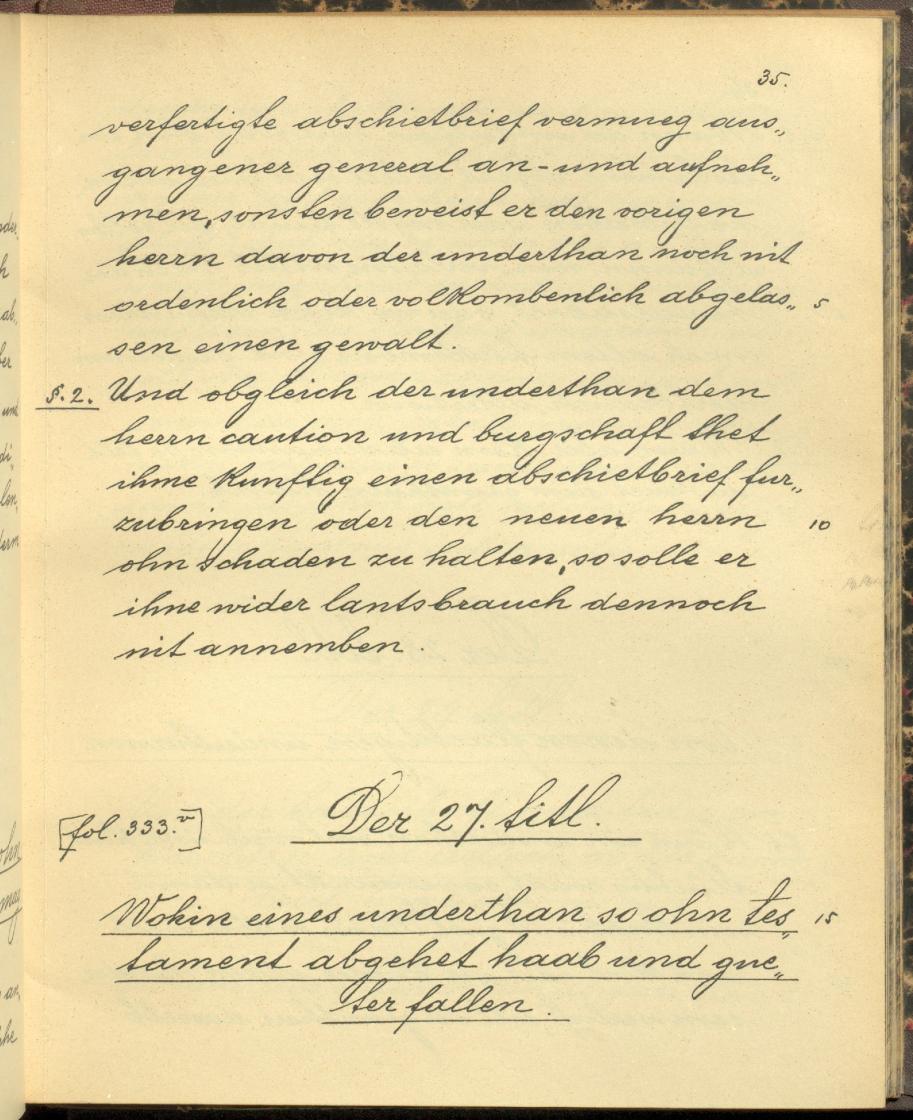 35.
verfertigte abschietbrief vermueg aus„
gangener general an-und aufneh„
men, sonsten beweist er den vorigen
herrn davon der underthan noch nit
ordenlich oder volkombenlich abgelas„ 5
sen einen gewalt.
§. 2. Und obgleich der underthan dem
herrn caution und burgschaft thet
ihme kunftig einen abschietbrief fur„
zubringen oder den neuen herrn 10
ohn schaden zu halten, so solle er
ihne wider lantsbrauch dennoch
nit annemben.
[fol. 333.v] Der 27. titl.
Wohin eines underthan so ohn tes„ 15
tament abgehet haab und gue„
ter fallen.